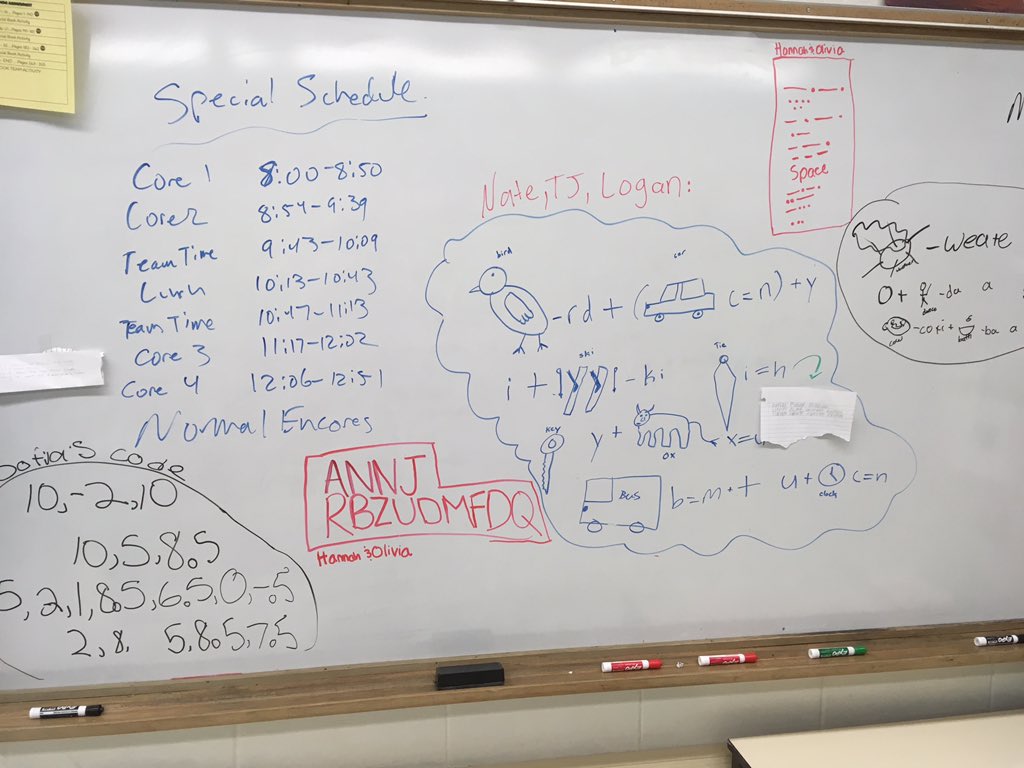 Special Schedule.
Core 1 8:00-8:50
Core 2 8:54-9:39
Team Time 9:43-10:09
Lunch 10:13-10:43
Team Time 10:47-11:13
Core 3 11:17-12:02
Core 4 12:06-12:51
Normal Encores
Sofia's code
10,-2,10
10,5,8.5
5,2,1,8.5,6.5,0,-.5
2,8. 5,8.5,7.5
ANNJ
RBZUDMFDQ
Hannah & Olivia
Nate, TJ, Logan:
bird
car
-rd + ( c=n) + y
ski
Tie
i + -ki i=h
key
y + ox x=
Bus b=m + t u + clock c=n
Hannah & Olivia
Space
-weate
O + -da a
dance
-co + -ba a